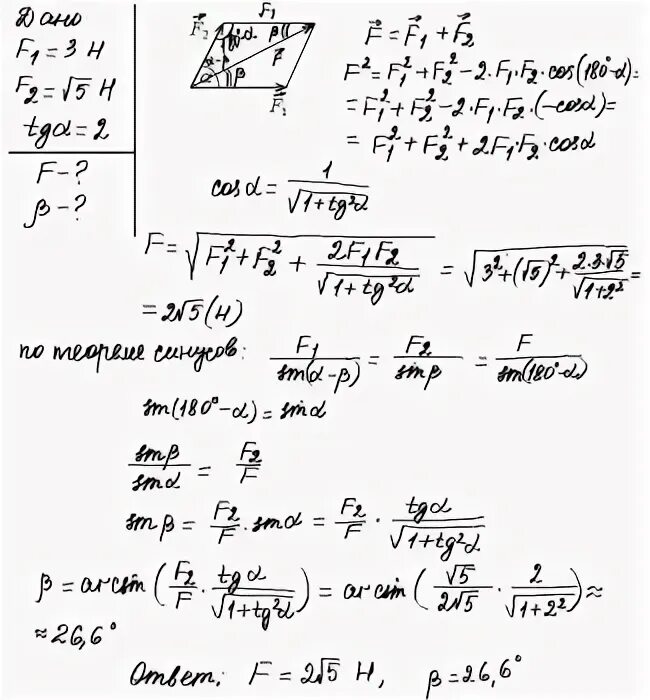 Дано
F₁ = 3 Н
F₂ = √5 Н
tgα = 2
F - ?
β - ?
F₁
F₂ 180°-α β
α-β F
α β
F₁
F⃗ = F⃗₁ + F⃗₂
F² = F₁² + F₂² - 2·F₁·F₂·cos(180°-α) =
= F₁² + F₂² - 2·F₁·F₂·(-cosα) =
= F₁² + F₂² + 2F₁·F₂·cosα
cosα = 1/√(1+tg²α)
F = √(F₁² + F₂² + 2·F₁F₂/√(1+tg²α)) = √(3² + (√5)² + 2·3·√5/√(1+2²)) =
= 2√5 (Н)
по теореме синусов: F₁/sin(α-β) = F₂/sinβ = F/sin(180°-α)
sin(180°-α) = sinα
sinβ/sinα = F₂/F
sinβ = F₂/F · sinα = F₂/F · tgα/√(1+tg²α)
β = arcsin(F₂/F · tgα/√(1+tg²α)) = arcsin(√5/2√5 · 2/√(1+2²)) ≈
≈ 26,6°
Ответ: F = 2√5 Н, β = 26,6°